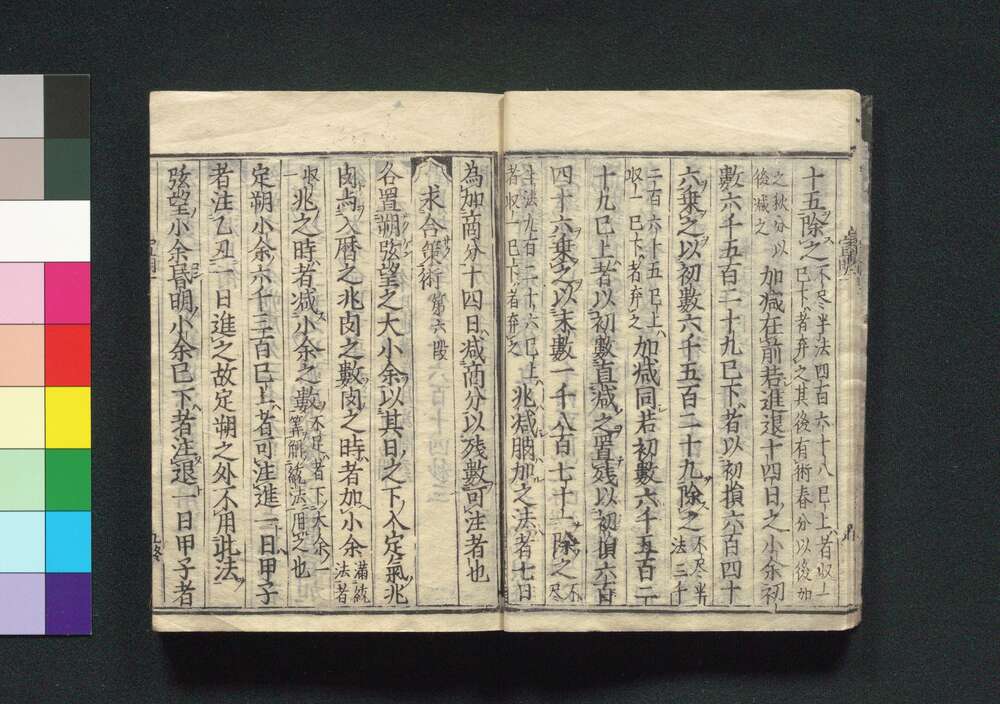 十五除之不尽半法四百六十八已上者収一已下者弃之其後有術春分以後加
之秋分以後減之加減在前若進退十四日之小余初
數六千五百二十九已下者以初損六百四十
六乗之以初數六千五百二十九除之不尽半法三千
二百六十五已上収一已下者弃之加減同若初數六千五百二
十九已上者以初數直減之置残以初損六百
四十六乗之以末數一千八百七十一除之不尽
半法九百三十六已上者収一已下者弃之兆減朒加之法者七日
為加商分十四日減商分以残數可注者也
求合策術第六段
各置朔弦望之大小余以其日之下入定氣兆
朒与入暦之兆朒之數朒之時者加小余滿統法者
収一兆之時者减小余之數不足者下大余一算加統法用之也
定朔小余六千三百已上者可注進一日甲子
者注乙丑一日進之故定朔之外不用此法
弦望小余昬明小余已下者注退一日甲子者